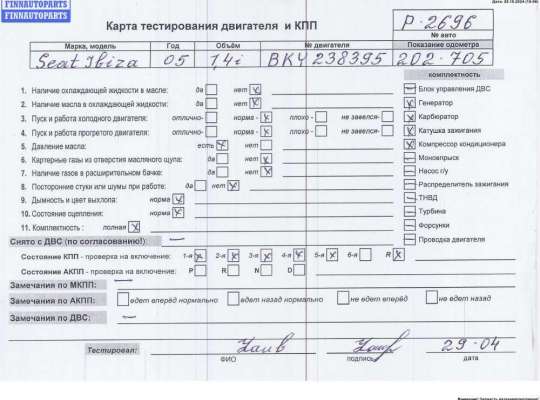 FINNAUTOPARTS
FINNAUTOPARTS
Карта тестирования двигателя и КПП
P-2696
№ авто
Марка, модель Год Объём № двигателя Показание одометра
Seat Ibiza 05 1,4i BKY 238395 202-705
комплектность
1. Наличие охлаждающей жидкости в масле: да нет x
2. Наличие масла в охлаждающей жидкости: да нет x
3. Пуск и работа холодного двигателя: отлично- норма - x плохо - не завелся-
4. Пуск и работа прогретого двигателя: отлично- норма - x плохо - не завелся-
5. Давление масла: есть x нет
6. Картерные газы из отверстия масляного щупа: да нет x
7. Наличие газов в расширительном бачке: да нет x
8. Посторонние стуки или шумы при работе: да нет x
9. Дымность и цвет выхлопа: норма x
10. Состояние сцепления: норма x
11. Комплектность : полная x
— Блок управления ДВС
x Генератор
x Карбюратор
x Катушка зажигания
x Компрессор кондиционера
— Моновпрыск
— Насос г/у
— Распределитель зажигания
— ТНВД
— Турбина
— Форсунки
— Проводка двигателя
Снято с ДВС (по согласованию!): —
Состояние КПП - проверка на включение: 1-я x 2-я x 3-я x 4-я x 5-я x 6-я R x
Состояние АКПП - проверка на включение: P R N D
Замечания по МКПП: —
Замечания по АКПП: едет вперед нормально едет назад нормально не едет вперёд не едет назад
Замечания по ДВС: —
Тестировал: 29-04
ФИО подпись дата